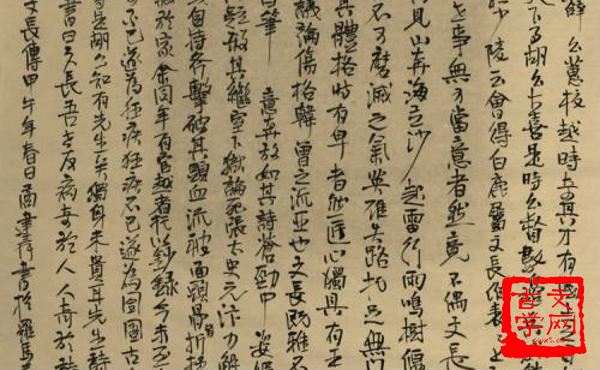 薛公蕙校越時亦異其才有國士之
下事胡公大喜是時公督數邊兵
少陵云會得白鹿屬文長作表表上
之事無不當意者然竟不偶文長
見山奔海立沙起雷行雨鳴樹偃
不可磨滅之氣英雄失路托足無門
其體格時有卑者然匠心獨具有王
議論傷格韓曾之流亞也文長既雅不
筆意奔放如其詩蒼勁中姿媚
疑殺其繼室下獄論死張太史元汴力解
自持斧擊破其頭血流被面頭骨皆折揉
於家余同年有官越者托以鈔錄今未至
不已遂為狂疾狂疾不已遂為囹圄古
是胡公知有先生矣獨身未貴耳先生詩
書曰文長吾老友病奇於人人奇於詩
文長傳甲午年春日商建書於羅馬
文网